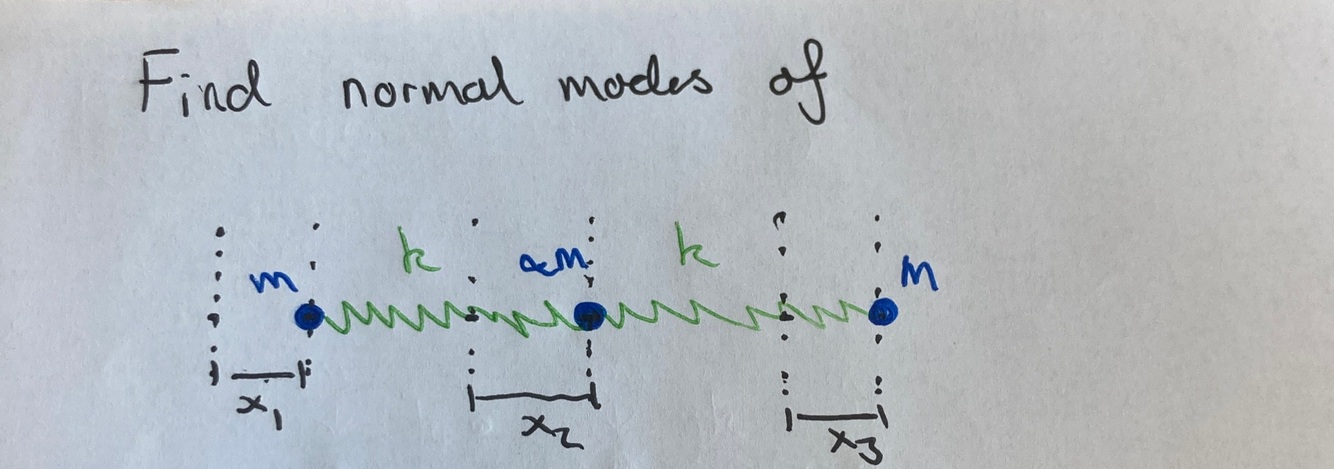 Find normal modes of
k k
m αm m
x₁ x₂ x₃